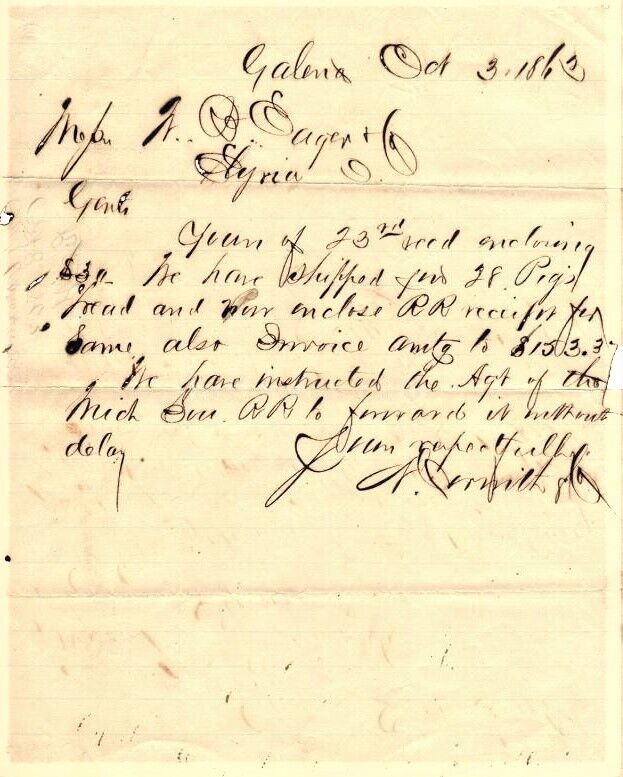 Galena Oct 3. 1863
Messrs W. B. Eager & Co
Elyria O.
Gents
Yours of 23rd recd enclosing
$30 We have shipped you 28 Pigs
Lead and now enclose RR receipt for
Same also Invoice amtg to $153.37
We have instructed the Agt of the
Mich Sou. RR to forward it without
delay
Yours respectfully
N. Corwith & Co